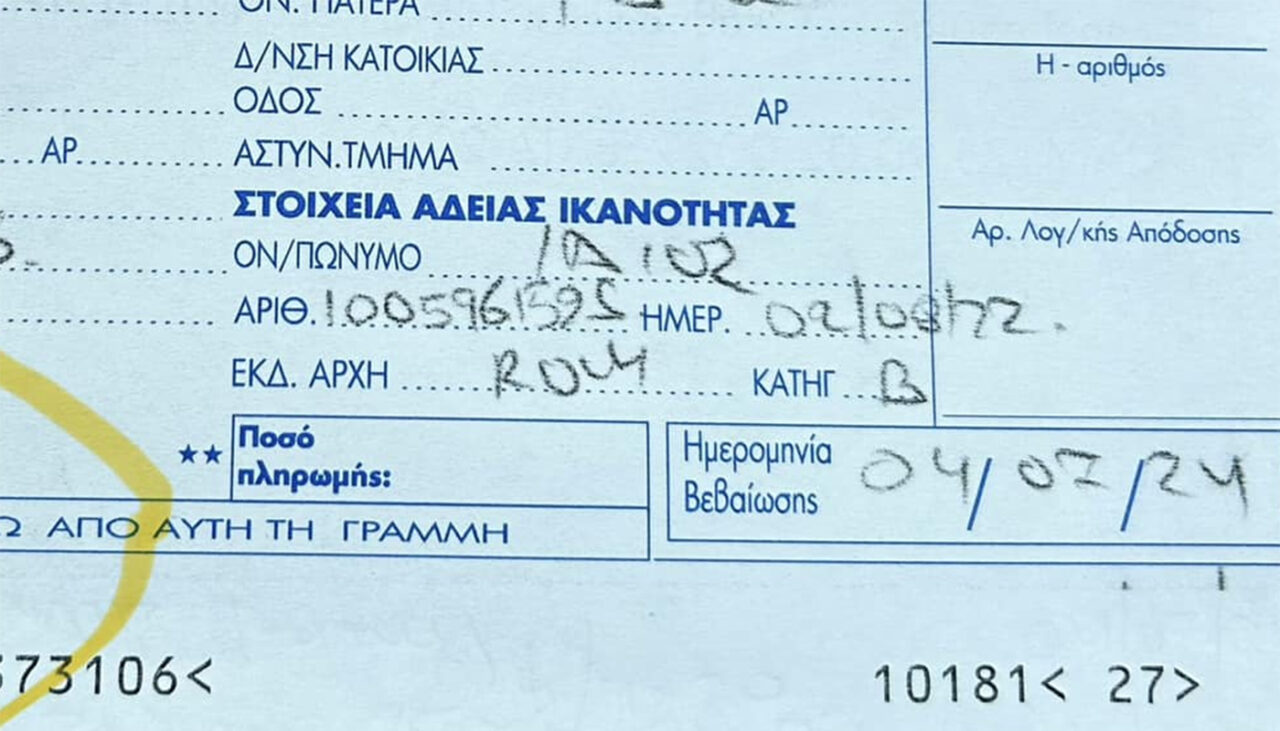 ΟΝ. ΠΑΤΕΡΑ
Δ/ΝΣΗ ΚΑΤΟΙΚΙΑΣ
Η - αριθμός
ΟΔΟΣ ΑΡ
ΑΡ. ΑΣΤΥΝ.ΤΜΗΜΑ
ΣΤΟΙΧΕΙΑ ΑΔΕΙΑΣ ΙΚΑΝΟΤΗΤΑΣ
Αρ. Λογ/κής Απόδοσης
ΟΝ/ΠΩΝΥΜΟ ΙΔΙΟΣ
ΑΡΙΘ. ΗΜΕΡ.
ΕΚΔ. ΑΡΧΗ ΚΑΤΗΓ B
★★ Ποσό
πληρωμής:
Ημερομηνία
Βεβαίωσης 04/07/24
Ω ΑΠΟ ΑΥΤΗ ΤΗ ΓΡΑΜΜΗ
573106< 10181< 27>